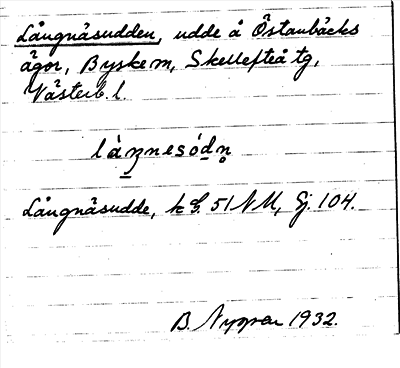 Långnäsudden, udde å Östanbäcks
ägor, Byske sn, Skellefteå tg,
Västerb. l.
làŋnesódn̥
Långnäsudde, k G. 51 NV, Ej. 104.
B. Nyman 1932.